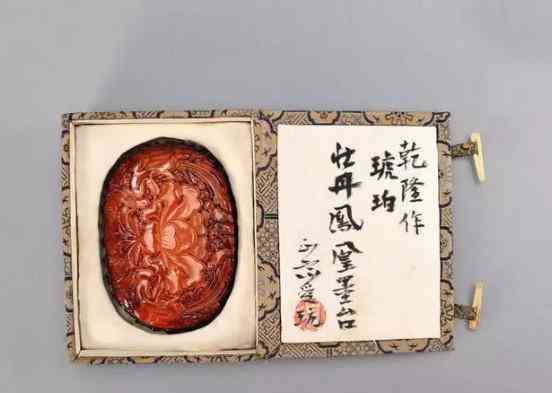 乾隆作
琥珀
牡丹鳳凰墨台